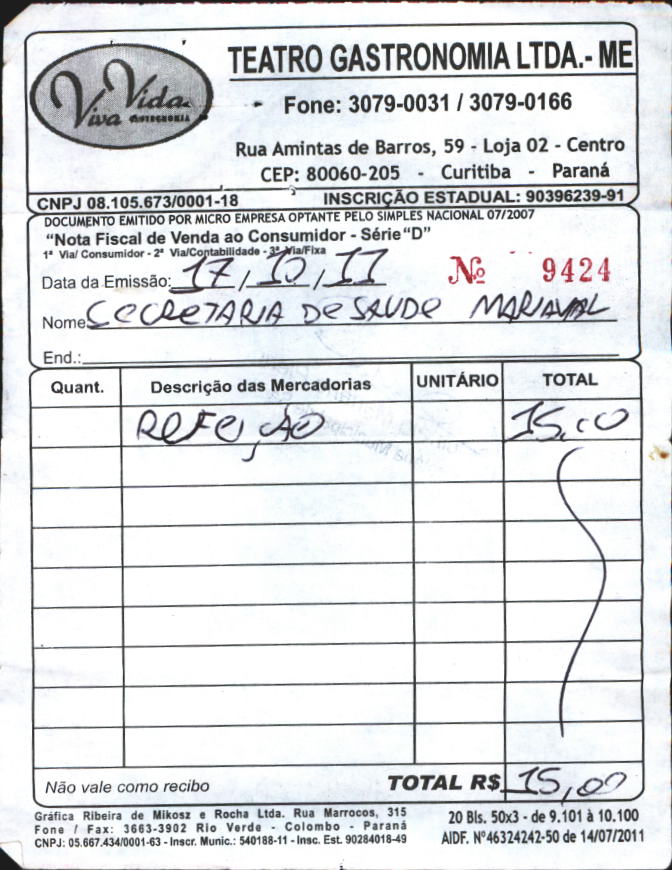 Viva Vida
GASTRONOMIA
TEATRO GASTRONOMIA LTDA.- ME
Fone: 3079-0031 / 3079-0166
Rua Amintas de Barros, 59 - Loja 02 - Centro
CEP: 80060-205 - Curitiba - Paraná
CNPJ 08.105.673/0001-18 INSCRIÇÃO ESTADUAL: 90396239-91
DOCUMENTO EMITIDO POR MICRO EMPRESA OPTANTE PELO SIMPLES NACIONAL 07/2007
"Nota Fiscal de Venda ao Consumidor - Série "D"
1ª Via/ Consumidor - 2ª Via/Contabilidade - 3ª Via/Fixa
Data da Emissão: 17, 10, 11 Nº 9424
Nome SECRETARIA DE SAUDE MARIALVA
End.:
Quant. Descrição das Mercadorias UNITÁRIO TOTAL
REFEIÇÃO 15,00
Não vale como recibo TOTAL R$ 15,00
Gráfica Ribeira de Mikosz e Rocha Ltda. Rua Marrocos, 315
Fone / Fax: 3663-3902 Rio Verde - Colombo - Paraná
CNPJ: 05.667.434/0001-63 - Inscr. Munic.: 540188-11 - Insc. Est. 90284018-49
20 Bls. 50x3 - de 9.101 à 10.100
AIDF. Nº46324242-50 de 14/07/2011